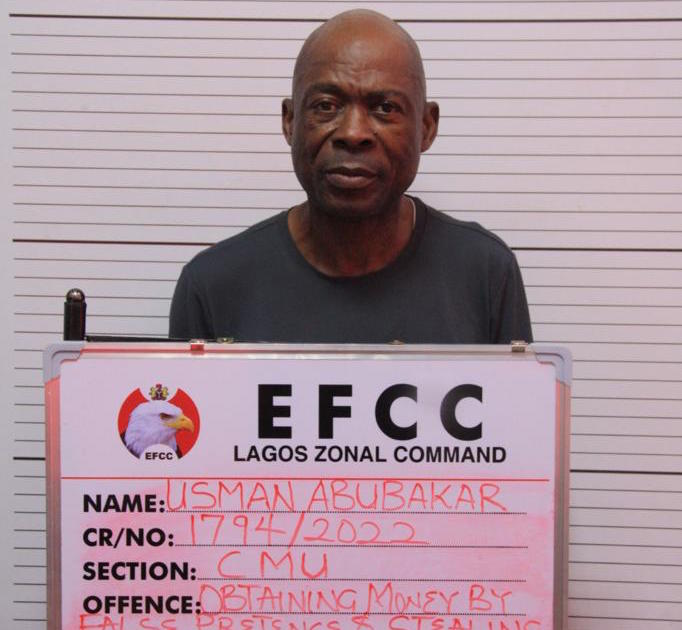 EFCC
EFCC
LAGOS ZONAL COMMAND
NAME: USMAN ABUBAKAR
CR/NO: 1794/2022
SECTION: CMU
OFFENCE: OBTAINING MONEY BY
FALSE PRETENCE & STEALING